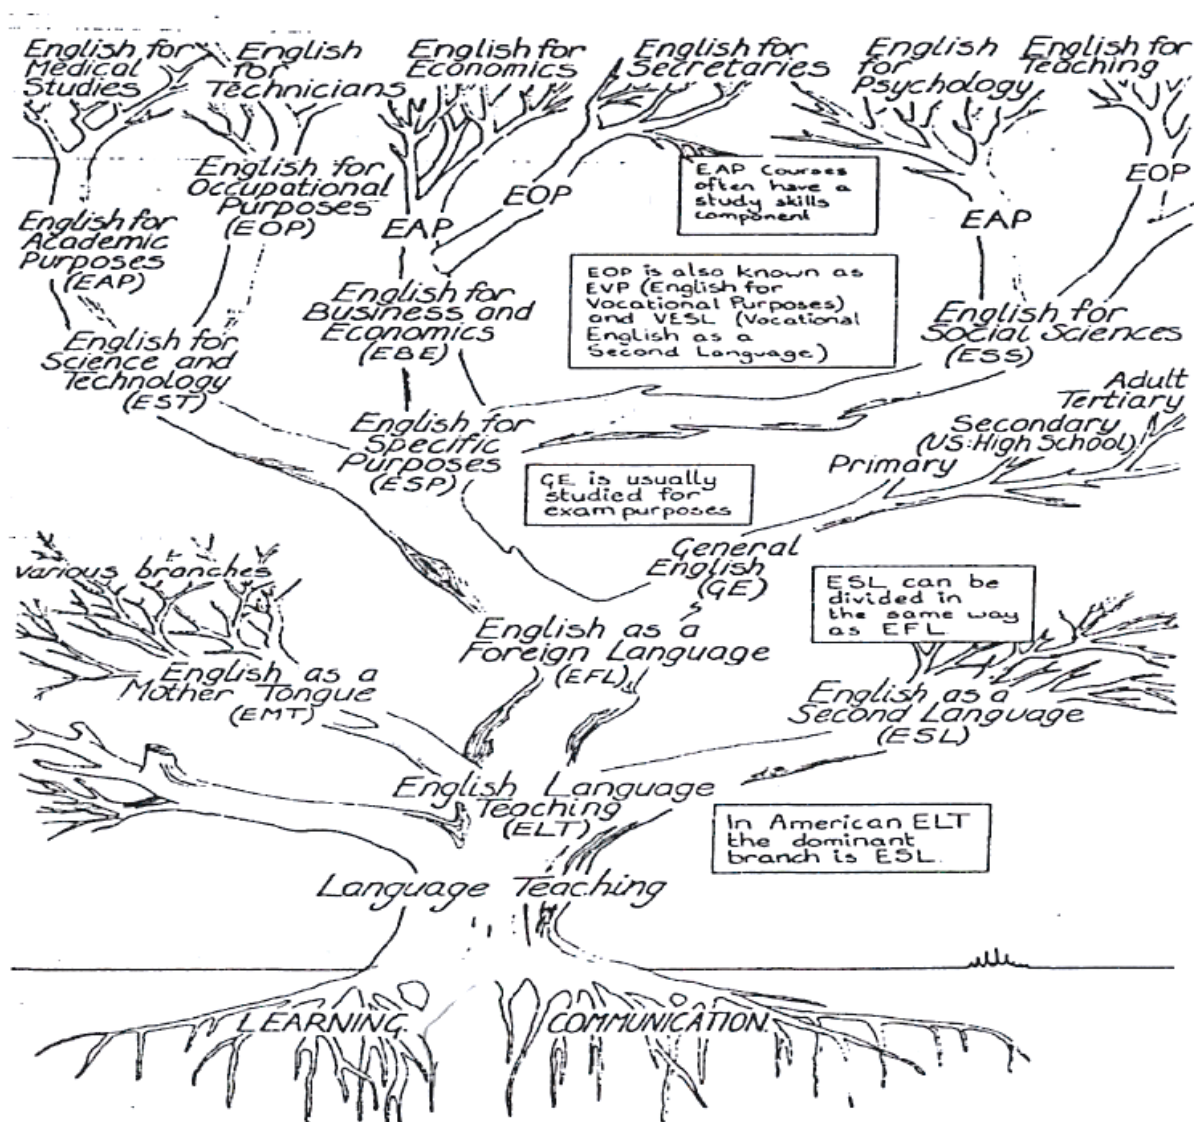 English for
Medical
Studies
English
for
Technicians
English for
Economics
English for
Secretaries
English
for
Psychology
English for
Teaching
English for
Occupational
Purposes
(EOP)
EAP Courses
often have a
study skills
component
EOP
EOP
English for
Academic
Purposes
(EAP)
EAP
EAP
EOP is also known as
EVP (English for
Vocational Purposes)
and VESL (Vocational
English as a
Second Language)
English for
Business and
Economics
(EBE)
English for
Social Sciences
(ESS)
English for
Science and
Technology
(EST)
Adult
Tertiary
Secondary
(US:High School)
Primary
English for
Specific
Purposes
(ESP)
GE is usually
studied for
exam purposes
General
English
(GE)
various branches
ESL can be
divided in
the same way
as EFL
English as a
Foreign Language
(EFL)
English as a
Mother Tongue
(EMT)
English as a
Second Language
(ESL)
English Language
Teaching
(ELT)
In American ELT
the dominant
branch is ESL.
Language Teaching
LEARNING
COMMUNICATION